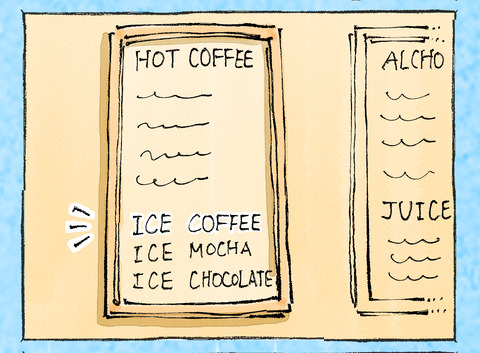 HOT COFFEE
ICE COFFEE
ICE MOCHA
ICE CHOCOLATE
ALCHO
JUICE